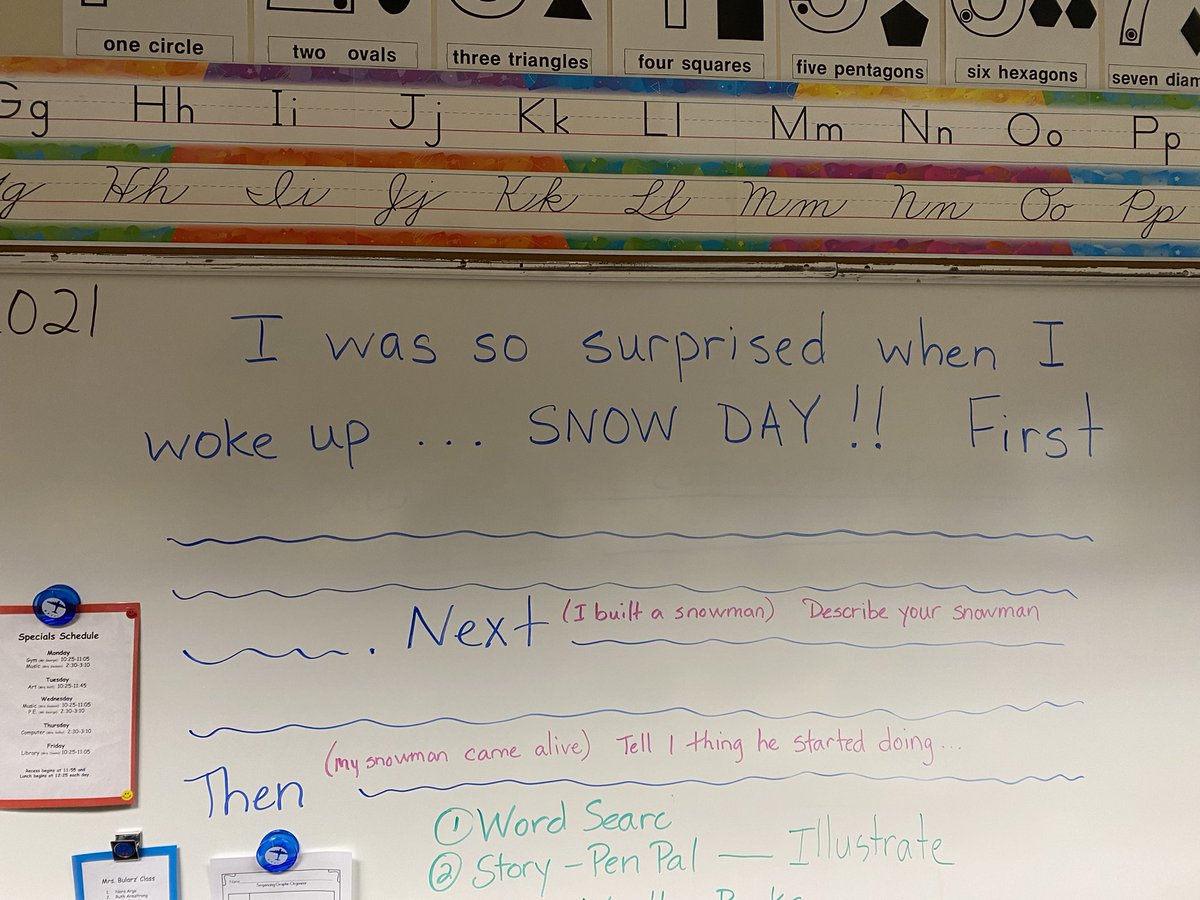 one circle two ovals three triangles four squares five pentagons six hexagons seven
Gg Hh Ii Jj Kk Ll Mm Nn Oo Pp
g Hh Ii Jj Kk Ll Mm Nn Oo Pp
021
I was so surprised when I
woke up ... SNOW DAY!! First
. Next (I built a snowman) Describe your snowman
(my snowman came alive) Tell 1 thing he started doing...
Then
① Word Searc
② Story - Pen Pal — Illustrate
Specials Schedule
Monday
Gym 10:25-11:05
Music 2:30-3:10
Tuesday
Art 10:25-11:45
Wednesday
Music 10:25-11:05
P.E. 2:30-3:10
Thursday
Computer 2:30-3:10
Friday
Library 10:25-11:05
Recess begins at 11:55 and
Lunch begins at 12:25 each day.
Mrs. Bularz' Class
Name
Sequencing Graphic Organizer